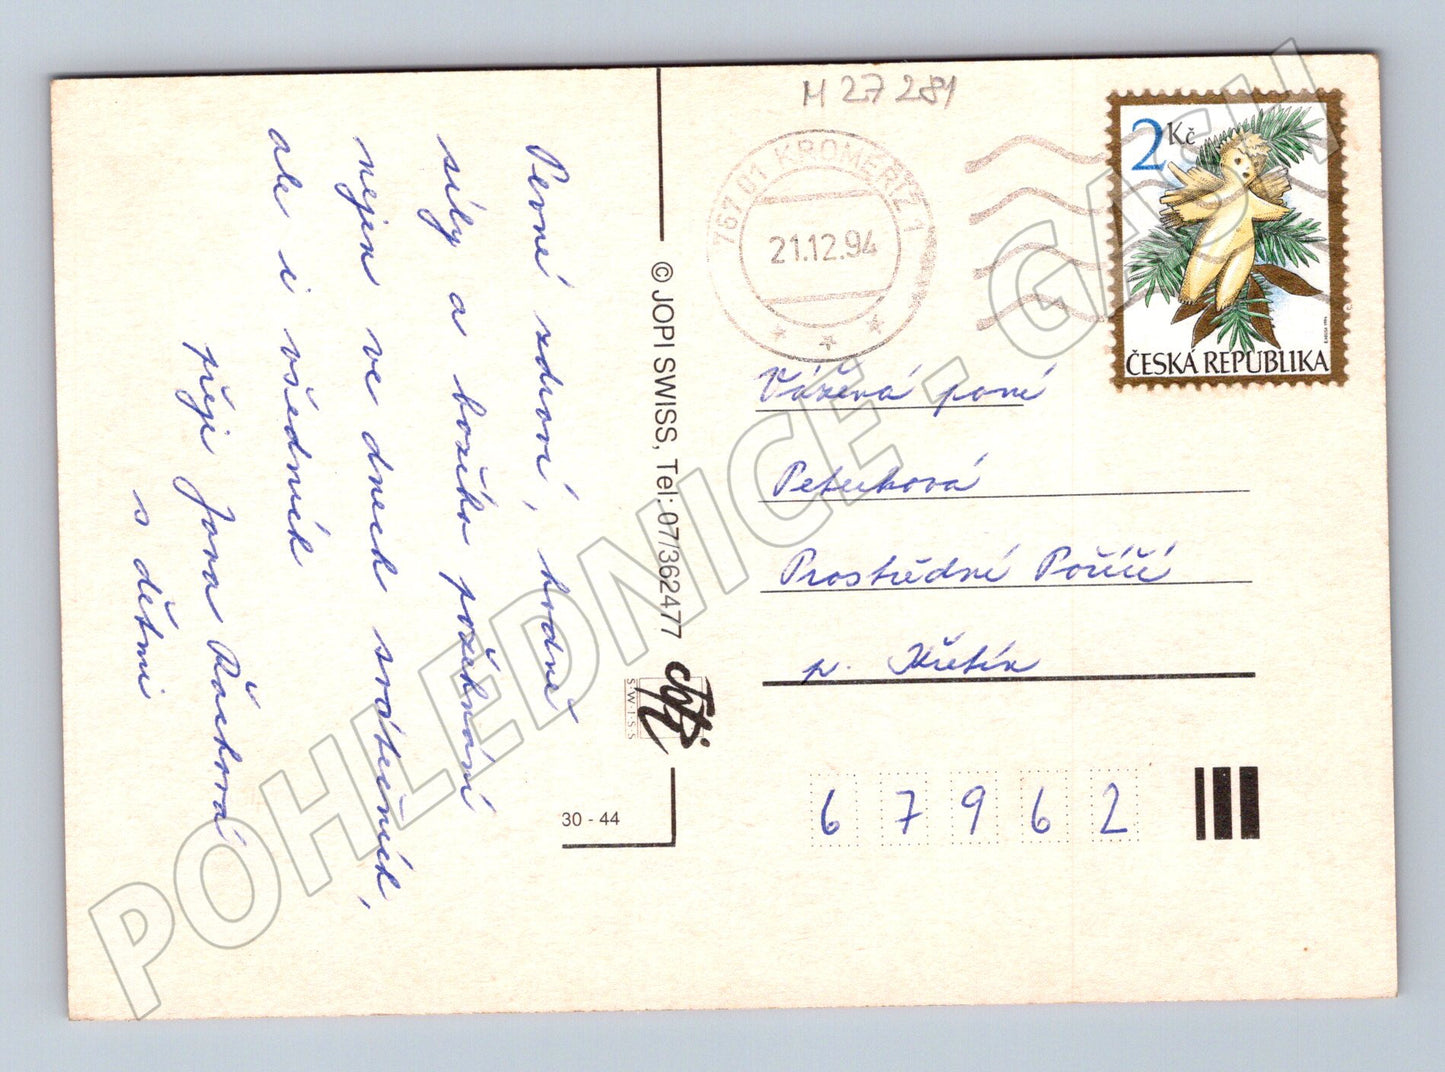 Pevné zdraví, hodně
síly a božího požehnání
nejen ve dnech svátečních,
ale i všedních
přeje Jana Řáchová
s dětmi
© JOPI SWISS, Tel: 07/362477
Jopi
SWISS
30 - 44
M 27 281
767 01 KROMERIZ 1
21.12.94
2 Kč
ČESKÁ REPUBLIKA
Vážená paní
Peterková
Prostřední Poříčí
p. Křetín
67962
POHLEDNICE - GASH